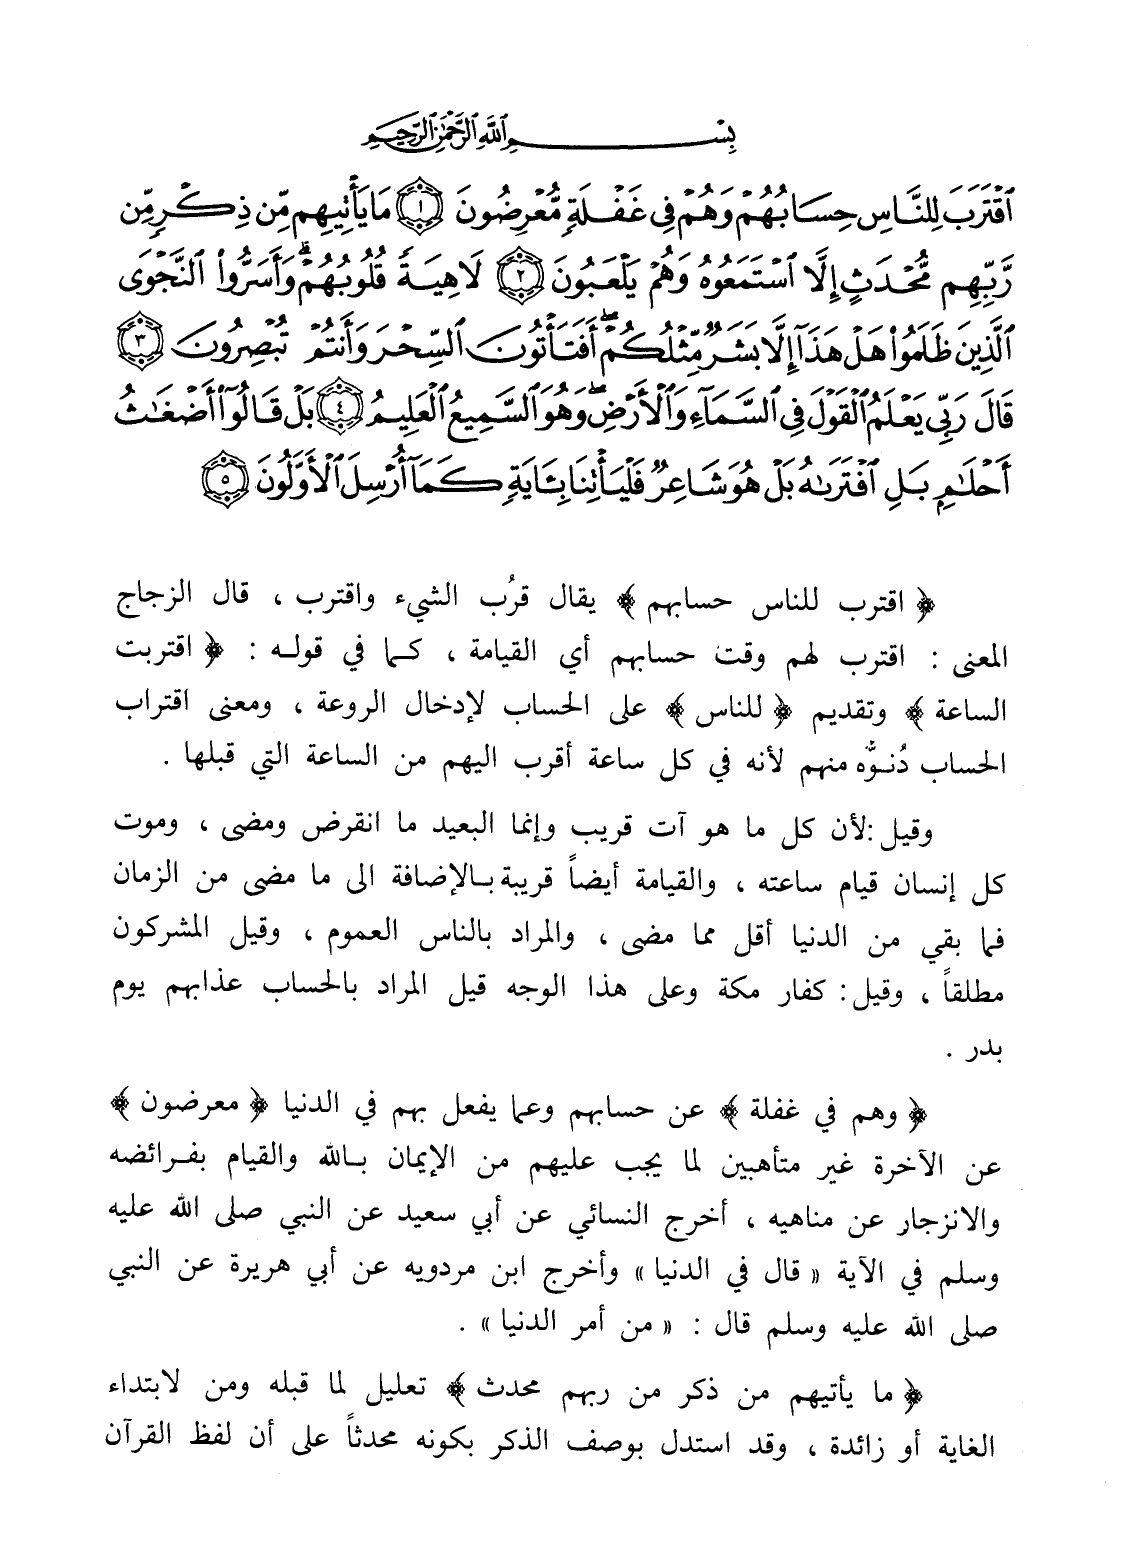 بِسْمِ ٱللَّهِ ٱلرَّحْمَٰنِ ٱلرَّحِيمِ
ٱقْتَرَبَ لِلنَّاسِ حِسَابُهُمْ وَهُمْ فِى غَفْلَةٍ مُّعْرِضُونَ ١ مَا يَأْتِيهِم مِّن ذِكْرٍ مِّن
رَّبِّهِم مُّحْدَثٍ إِلَّا ٱسْتَمَعُوهُ وَهُمْ يَلْعَبُونَ ٢ لَاهِيَةً قُلُوبُهُمْ ۗ وَأَسَرُّوا۟ ٱلنَّجْوَى
ٱلَّذِينَ ظَلَمُوا۟ هَلْ هَٰذَآ إِلَّا بَشَرٌ مِّثْلُكُمْ ۖ أَفَتَأْتُونَ ٱلسِّحْرَ وَأَنتُمْ تُبْصِرُونَ ٣
قَالَ رَبِّى يَعْلَمُ ٱلْقَوْلَ فِى ٱلسَّمَآءِ وَٱلْأَرْضِ ۖ وَهُوَ ٱلسَّمِيعُ ٱلْعَلِيمُ ٤ بَلْ قَالُوٓا۟ أَضْغَٰثُ
أَحْلَٰمٍۭ بَلِ ٱفْتَرَىٰهُ بَلْ هُوَ شَاعِرٌ فَلْيَأْتِنَا بِـَٔايَةٍ كَمَآ أُرْسِلَ ٱلْأَوَّلُونَ ٥
﴿ اقترب للناس حسابهم ﴾ يقال قرُب الشيء واقترب ، قال الزجاج
المعنى : اقترب لهم وقت حسابهم أي القيامة ، كما في قوله : ﴿ اقتربت
الساعة ﴾ وتقديم ﴿ للناس ﴾ على الحساب لإدخال الروعة ، ومعنى اقتراب
الحساب دُنوُّه منهم لأنه في كل ساعة أقرب اليهم من الساعة التي قبلها .
وقيل :لأن كل ما هو آت قريب وإنما البعيد ما انقرض ومضى ، وموت
كل إنسان قيام ساعته ، والقيامة أيضاً قريبة بالإضافة الى ما مضى من الزمان
فما بقي من الدنيا أقل مما مضى ، والمراد بالناس العموم ، وقيل المشركون
مطلقاً ، وقيل : كفار مكة وعلى هذا الوجه قيل المراد بالحساب عذابهم يوم
بدر .
﴿ وهم في غفلة ﴾ عن حسابهم وعما يفعل بهم في الدنيا ﴿ معرضون ﴾
عن الآخرة غير متأهبين لما يجب عليهم من الإيمان بالله والقيام بفرائضه
والانزجار عن مناهيه ، أخرج النسائي عن أبي سعيد عن النبي صلى الله عليه
وسلم في الآية « قال في الدنيا » وأخرج ابن مردويه عن أبي هريرة عن النبي
صلى الله عليه وسلم قال : « من أمر الدنيا » .
﴿ ما يأتيهم من ذكر من ربهم محدث ﴾ تعليل لما قبله ومن لابتداء
الغاية أو زائدة ، وقد استدل بوصف الذكر بكونه محدثاً على أن لفظ القرآن